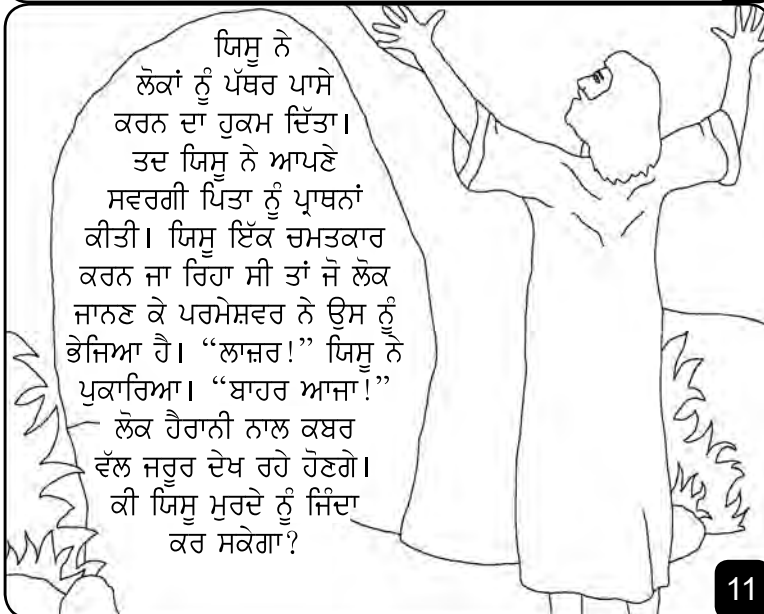 ਯਿਸੂ ਨੇ
ਲੋਕਾਂ ਨੂੰ ਪੱਥਰ ਪਾਸੇ
ਕਰਨ ਦਾ ਹੁਕਮ ਦਿੱਤਾ।
ਤਦ ਯਿਸੂ ਨੇ ਆਪਣੇ
ਸਵਰਗੀ ਪਿਤਾ ਨੂੰ ਪ੍ਰਾਥਨਾਂ
ਕੀਤੀ। ਯਿਸੂ ਇੱਕ ਚਮਤਕਾਰ
ਕਰਨ ਜਾ ਰਿਹਾ ਸੀ ਤਾਂ ਜੋ ਲੋਕ
ਜਾਨਣ ਕੇ ਪਰਮੇਸ਼ਵਰ ਨੇ ਉਸ ਨੂੰ
ਭੇਜਿਆ ਹੈ। “ਲਾਜ਼ਰ!” ਯਿਸੂ ਨੇ
ਪੁਕਾਰਿਆ। “ਬਾਹਰ ਆਜਾ!”
ਲੋਕ ਹੈਰਾਨੀ ਨਾਲ ਕਬਰ
ਵੱਲ ਜਰੂਰ ਦੇਖ ਰਹੇ ਹੋਣਗੇ।
ਕੀ ਯਿਸੂ ਮੁਰਦੇ ਨੂੰ ਜਿੰਦਾ
ਕਰ ਸਕੇਗਾ?
11